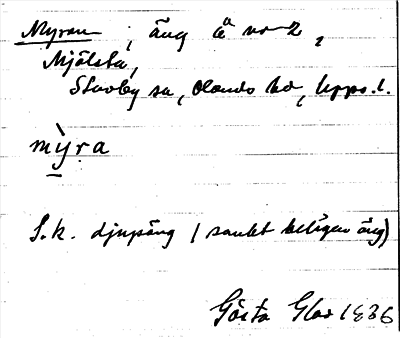 Myran, äng å no 2,
Mjölsta,
Stavby sn, Olands hd, Upps. l.
mỳra
S.k. djupäng (sankt belägen äng)
Gösta Glas 1936